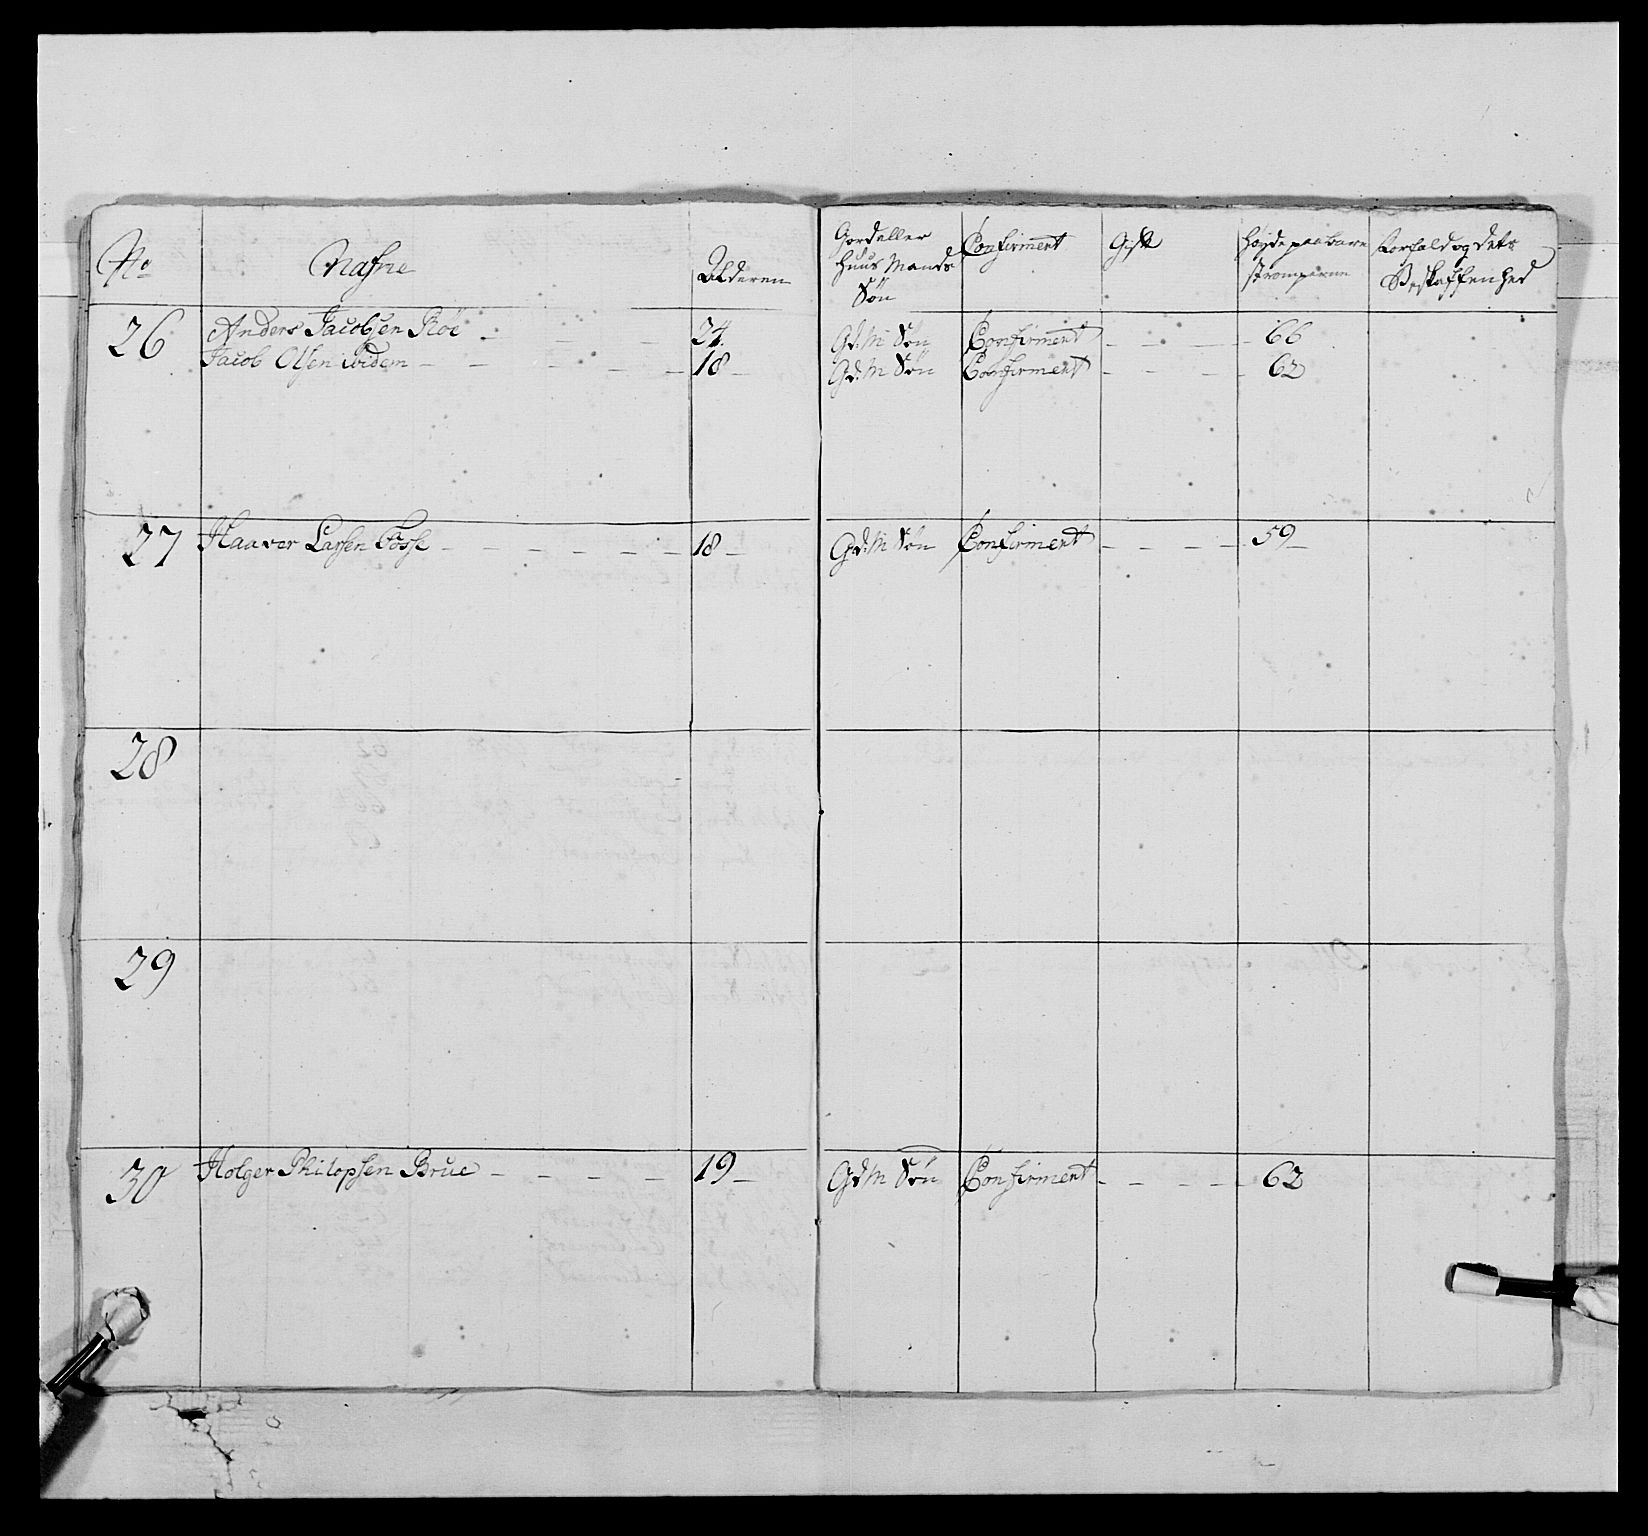 No Nafne Alderen Gard eller Huus Mands Søn Confirment Gift Høyde paa bare strømperne Forfald og dets Beskaffenhed
26 Anders Jacobsen Röe - - - 24. Gd: M Søn Confirment - - - - 66
Jacob Olsen ibidem - - - - - 18 - Gd: M Søn Confirment - - - - 62
27 Haaver Larsen Fosse - - - - - - 18 - Gd: M Søn Confirment - - - - 59 -
28
29
30 Holger Philopsen Brue - - - - 19 - Gd M Søn Confirment - - - - 62